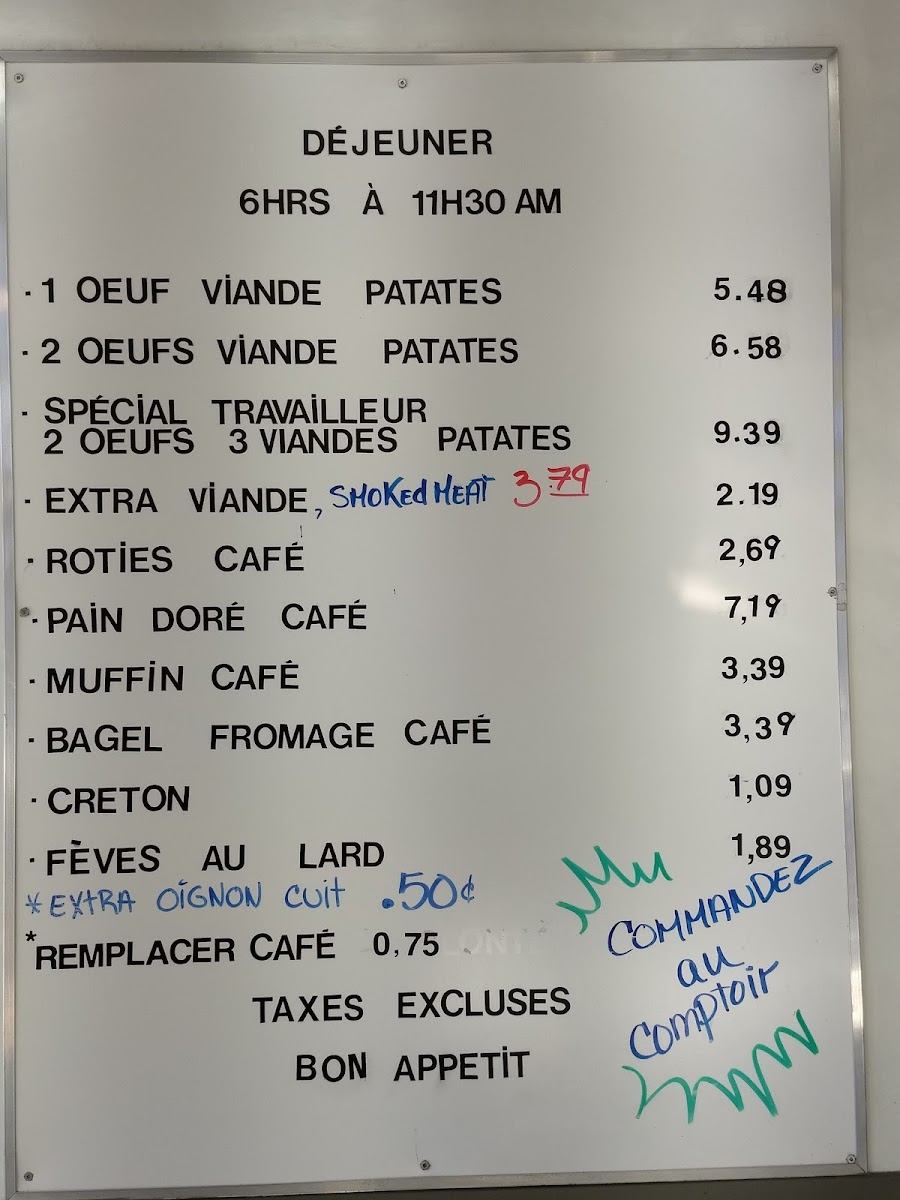 DÉJEUNER
6HRS À 11H30 AM
· 1 OEUF VIANDE PATATES 5.48
· 2 OEUFS VIANDE PATATES 6.58
· SPÉCIAL TRAVAILLEUR
2 OEUFS 3 VIANDES PATATES 9.39
· EXTRA VIANDE, SMOKED MEAT 3.79 2.19
· ROTIES CAFÉ 2,69
· PAIN DORÉ CAFÉ 7,19
· MUFFIN CAFÉ 3,39
· BAGEL FROMAGE CAFÉ 3,39
· CRETON 1,09
· FÈVES AU LARD 1,89
* EXTRA OIGNON CUIT .50¢
*REMPLACER CAFÉ 0,75
TAXES EXCLUSES
BON APPETIT
COMMANDEZ
au
comptoir